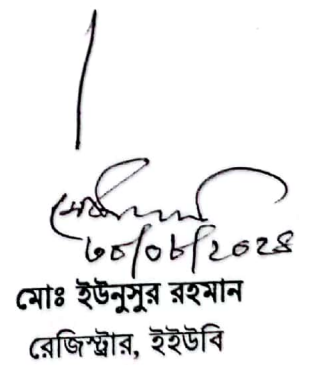 ৩০/০৮/২০২৪
মোঃ ইউনুসুর রহমান
রেজিস্ট্রার, ইইউবি